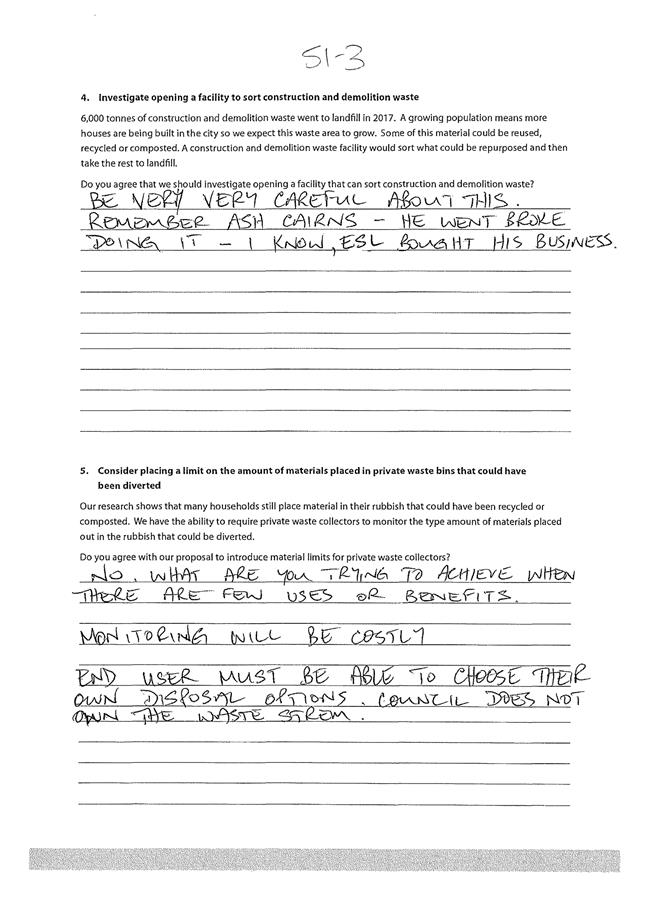 51-3
4. Investigate opening a facility to sort construction and demolition waste
6,000 tonnes of construction and demolition waste went to landfill in 2017. A growing population means more
houses are being built in the city so we expect this waste area to grow. Some of this material could be reused,
recycled or composted. A construction and demolition waste facility would sort what could be repurposed and then
take the rest to landfill.
Do you agree that we should investigate opening a facility that can sort construction and demolition waste?
BE VERY VERY CAREFUL ABOUT THIS.
REMEMBER ASH CAIRNS - HE WENT BROKE
DOING IT - I KNOW, ESL BOUGHT HIS BUSINESS.
5. Consider placing a limit on the amount of materials placed in private waste bins that could have
been diverted
Our research shows that many households still place material in their rubbish that could have been recycled or
composted. We have the ability to require private waste collectors to monitor the type amount of materials placed
out in the rubbish that could be diverted.
Do you agree with our proposal to introduce material limits for private waste collectors?
NO. WHAT ARE YOU TRYING TO ACHIEVE WHEN
THERE ARE FEW USES OR BENEFITS.
MONITORING WILL BE COSTLY
END USER MUST BE ABLE TO CHOOSE THEIR
OWN DISPOSAL OPTIONS. COUNCIL DOES NOT
OWN THE WASTE STREM.